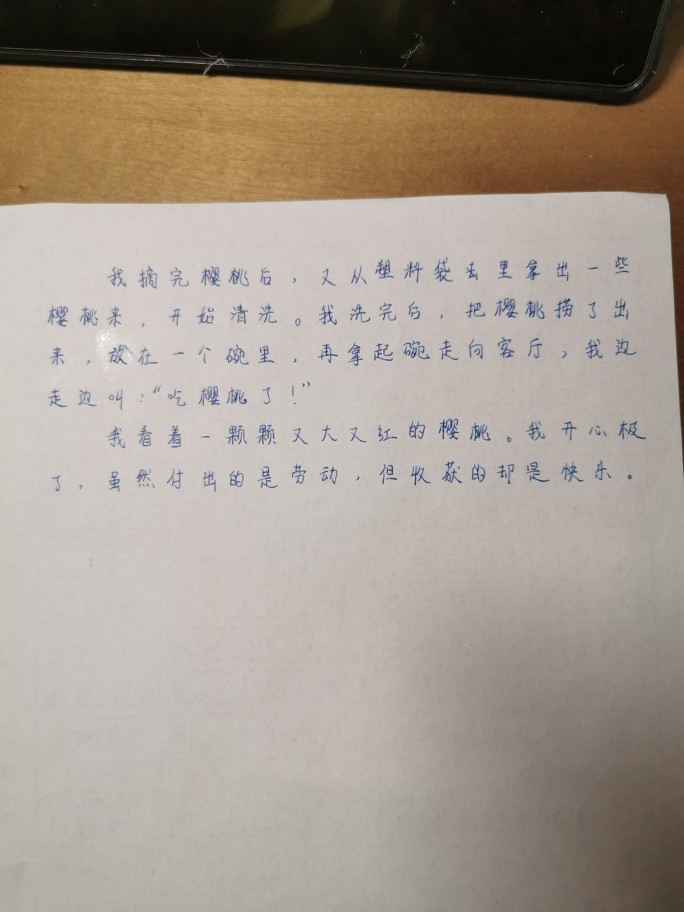 我摘完樱桃后，又从塑料袋去里拿出一些
樱桃来，开始清洗。我洗完后，把樱桃捞了出
来，放在一个碗里，再拿起碗走向客厅，我边
走边叫：“吃樱桃了！”
我看着一颗颗又大又红的樱桃。我开心极
了，虽然付出的是劳动，但收获的却是快乐。